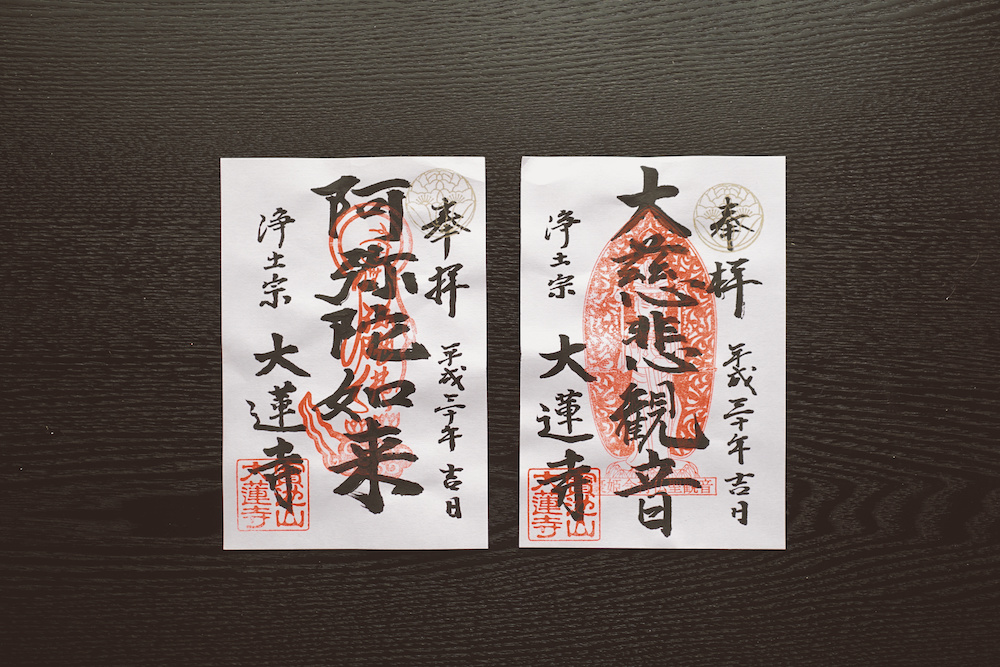 奉拝
平成三十年 吉日
阿弥陀如来
浄土宗
大蓮寺
大蓮寺
奉拝
平成三十年 吉日
大慈悲観音
浄土宗
大蓮寺
大蓮寺